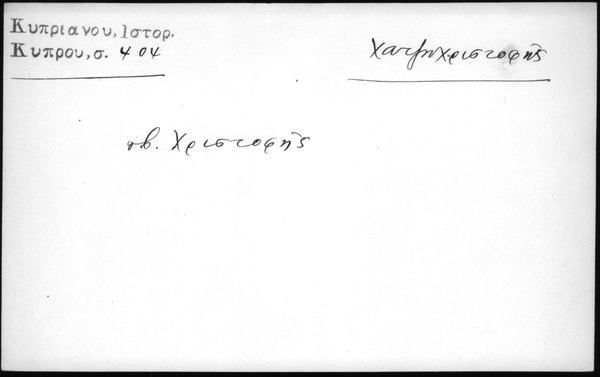 Κυπριανου, Ιστορ.
Κυπρου, σ. 404
Χατζηχριστοφῆς
πβ. Χριστοφῆς